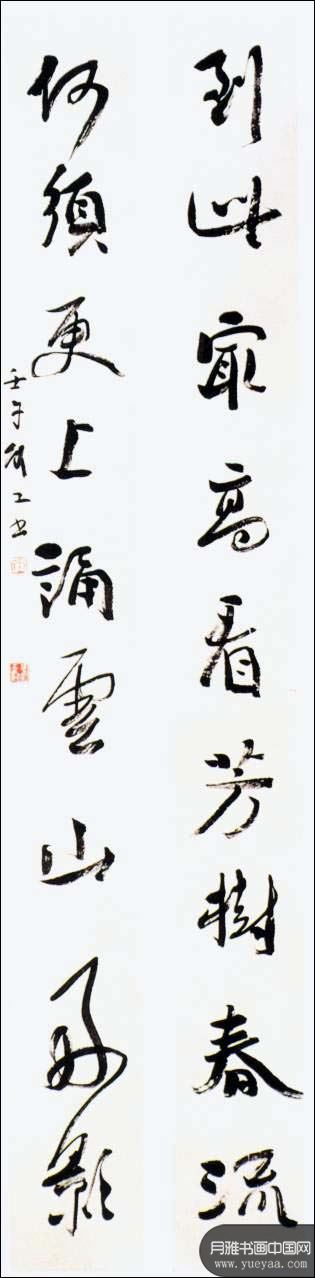 到此最高看芳樹春流
何須更上誦雲山好影
壬午 工书
月雅书画中国网
www.yueyaa.com